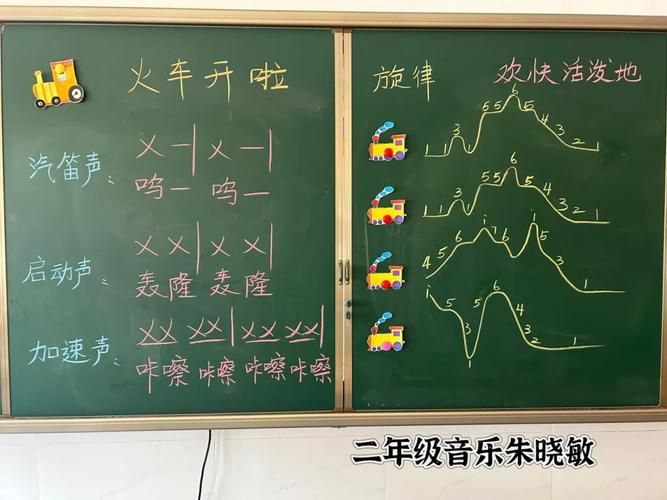 火车开啦
汽笛声：
X — | X — |
呜 — 呜 —
启动声：
X X | X X |
轰隆 轰隆
加速声：
XX XX | XX XX |
咔嚓 咔嚓 咔嚓 咔嚓
旋律 欢快活泼地
1 1 3 1 5 5 6 5 4 3 2 1
1 1 3 1 5 5 6 5 4 3 2 1
4 5 6 i 7 6 5 i 5 3 1
i 5 3 1 5 6 4 3 2 1
二年级音乐朱晓敏